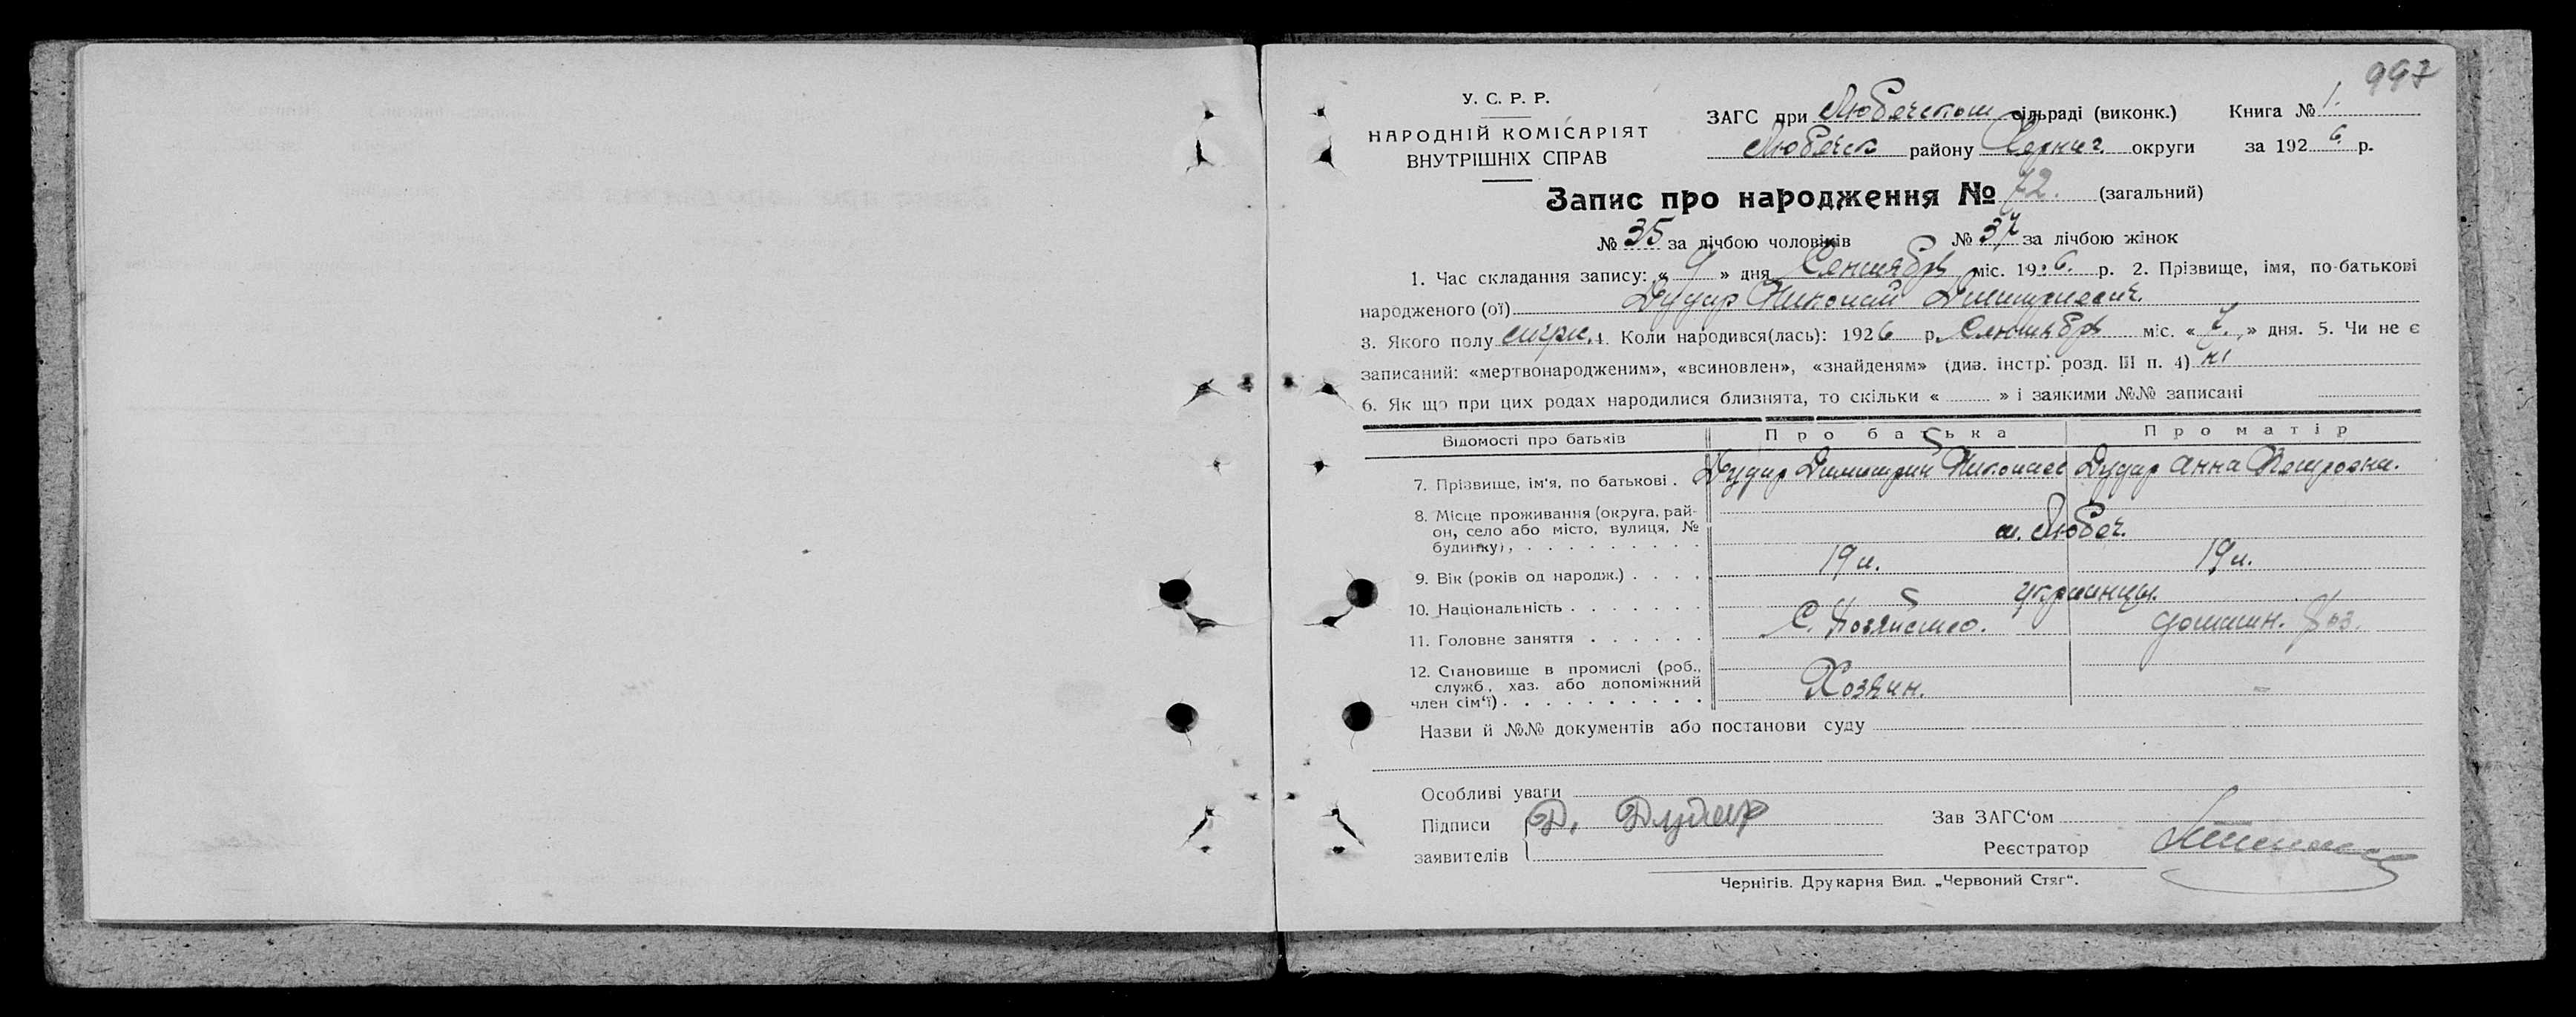 997
У. С. Р. Р.
НАРОДНІЙ КОМІСАРІЯТ
ВНУТРІШНІХ СПРАВ
ЗАГС при Любечском сільраді (виконк.) Книга № 1.
Любечск району Черниг. округи за 1926. р.
Запис про народження № 72. (загальний)
№ 35 за лічбою чоловіків № 37 за лічбою жінок
1. Час складання запису: « 9 » дня Сентября міс. 1926. р. 2. Прізвище, імя, по-батькові
народженого (ої) Дудар Николай Димитриевич.
3. Якого полу 4. Коли народився(лась): 1926 р. Сентября міс. « 7. » дня. 5. Чи не є
записаний: «мертвонародженим», «всиновлен», «знайденям» (див. інстр. розд. III п. 4) ні
6. Як що при цих родах народилися близнята, то скільки « » і заякими №№ записані
Відомості про батьків Про батька Про матір
7. Прізвище, ім'я, по батькові . Дудар Димитрий Николаев Дудар Анна Петровна.
8. Місце проживання (округа, рай-
он, село або місто, вулиця, №
будинку), . . . . . . . . . . м. Любеч.
9. Вік (років од народж.) . . . . 19 л. 19 л.
10. Національність . . . . . . . украинцы.
11. Головне заняття . . . . . . С. Хозяйство. домашн. Хоз.
12. Становище в промислі (роб.,
служб, хаз. або допоміжний
член сім'ї) . . . . . . . . . . Хозяин. –
Назви й №№ документів або постанови суду
Особливі уваги
Підписи Д. Дудар Зав ЗАГС'ом
заявителів Реєстратор
Чернігів. Друкарня Вид. „Червоний Стяг".